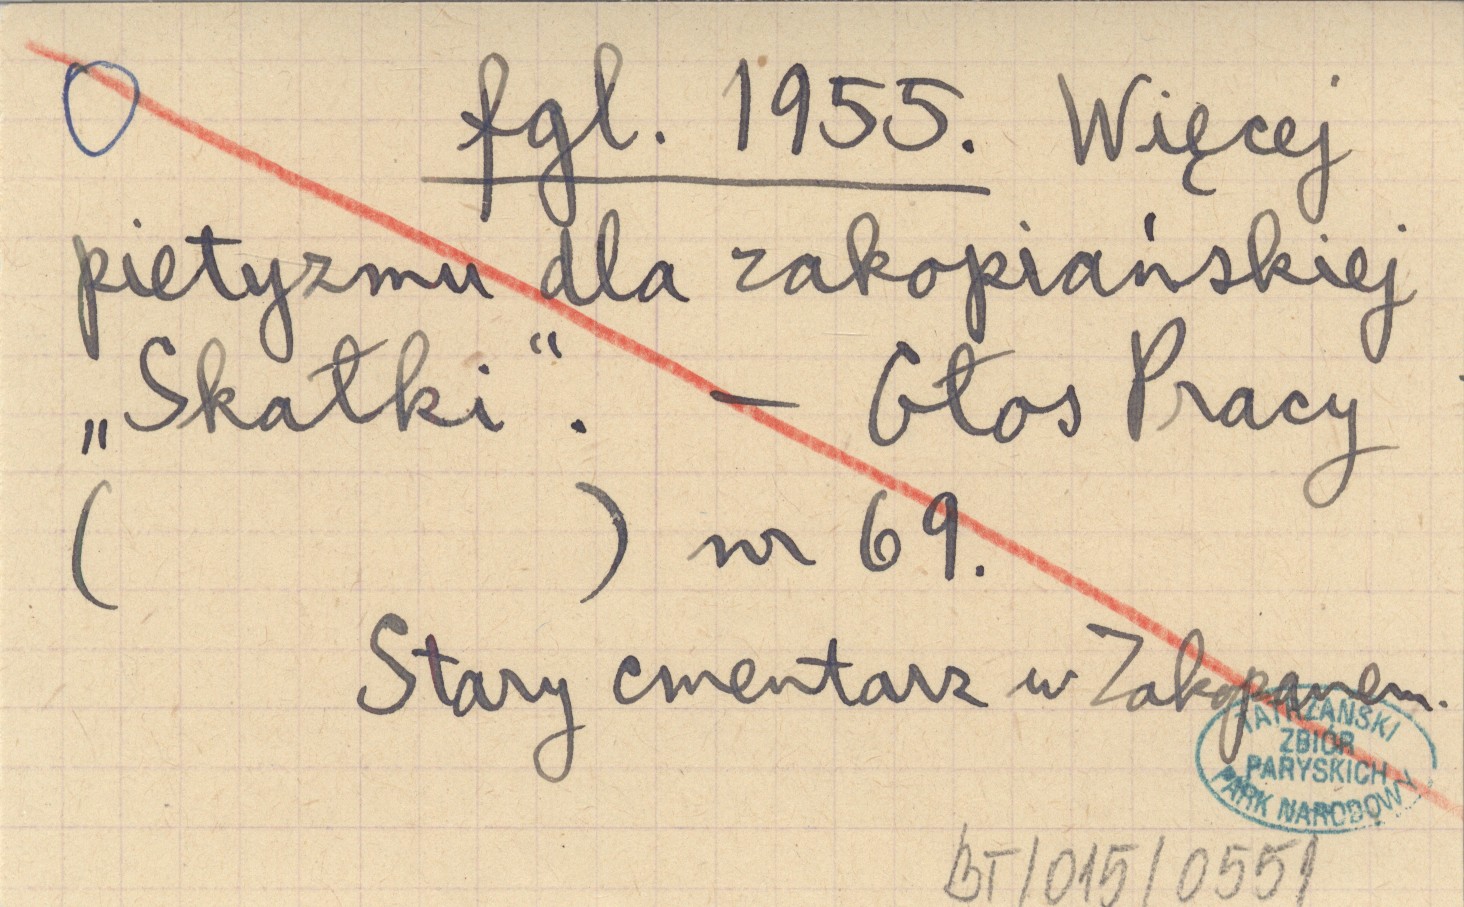 fgl. 1955. Więcej
pietyzmu dla zakopiańskiej
„Skałki“. – Głos Pracy
( ) nr 69.
Stary cmentarz w Zakopanem.
TATRZAŃSKI
ZBIÓR
PARYSKICH
PARK NARODOWY
BT/015/0551